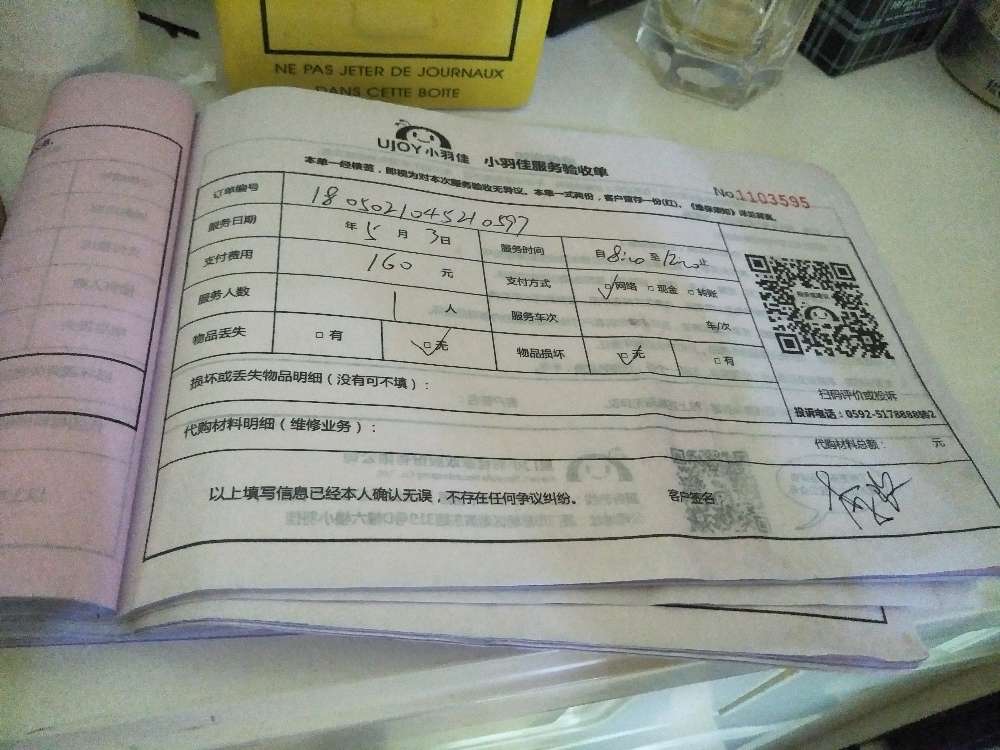 NE PAS JETER DE JOURNAUX
DANS CETTE BOITE
UJOY小羽佳 小羽佳服务验收单
No.1103595
本单一经横签，即视为对本次服务验收无异议。本单一式两份，客户留存一份(红)。《维保须知》详见背面。
订单编号 1805021045210597
服务日期 年 5 月 3 日 服务时间 自 8:00 至 12:00 止
支付费用 160 元 支付方式 □网络 □现金 □转账
服务人数 1 人 服务车次 车/次
物品丢失 □有 □无 物品损坏 □无 □有
扫码评价或投诉
投诉电话：0592-5178888转2
损坏或丢失物品明细（没有可不填）：
代购材料明细（维修业务）：
代购材料总额： 元
以上填写信息已经本人确认无误，不存在任何争议纠纷。 客户签名